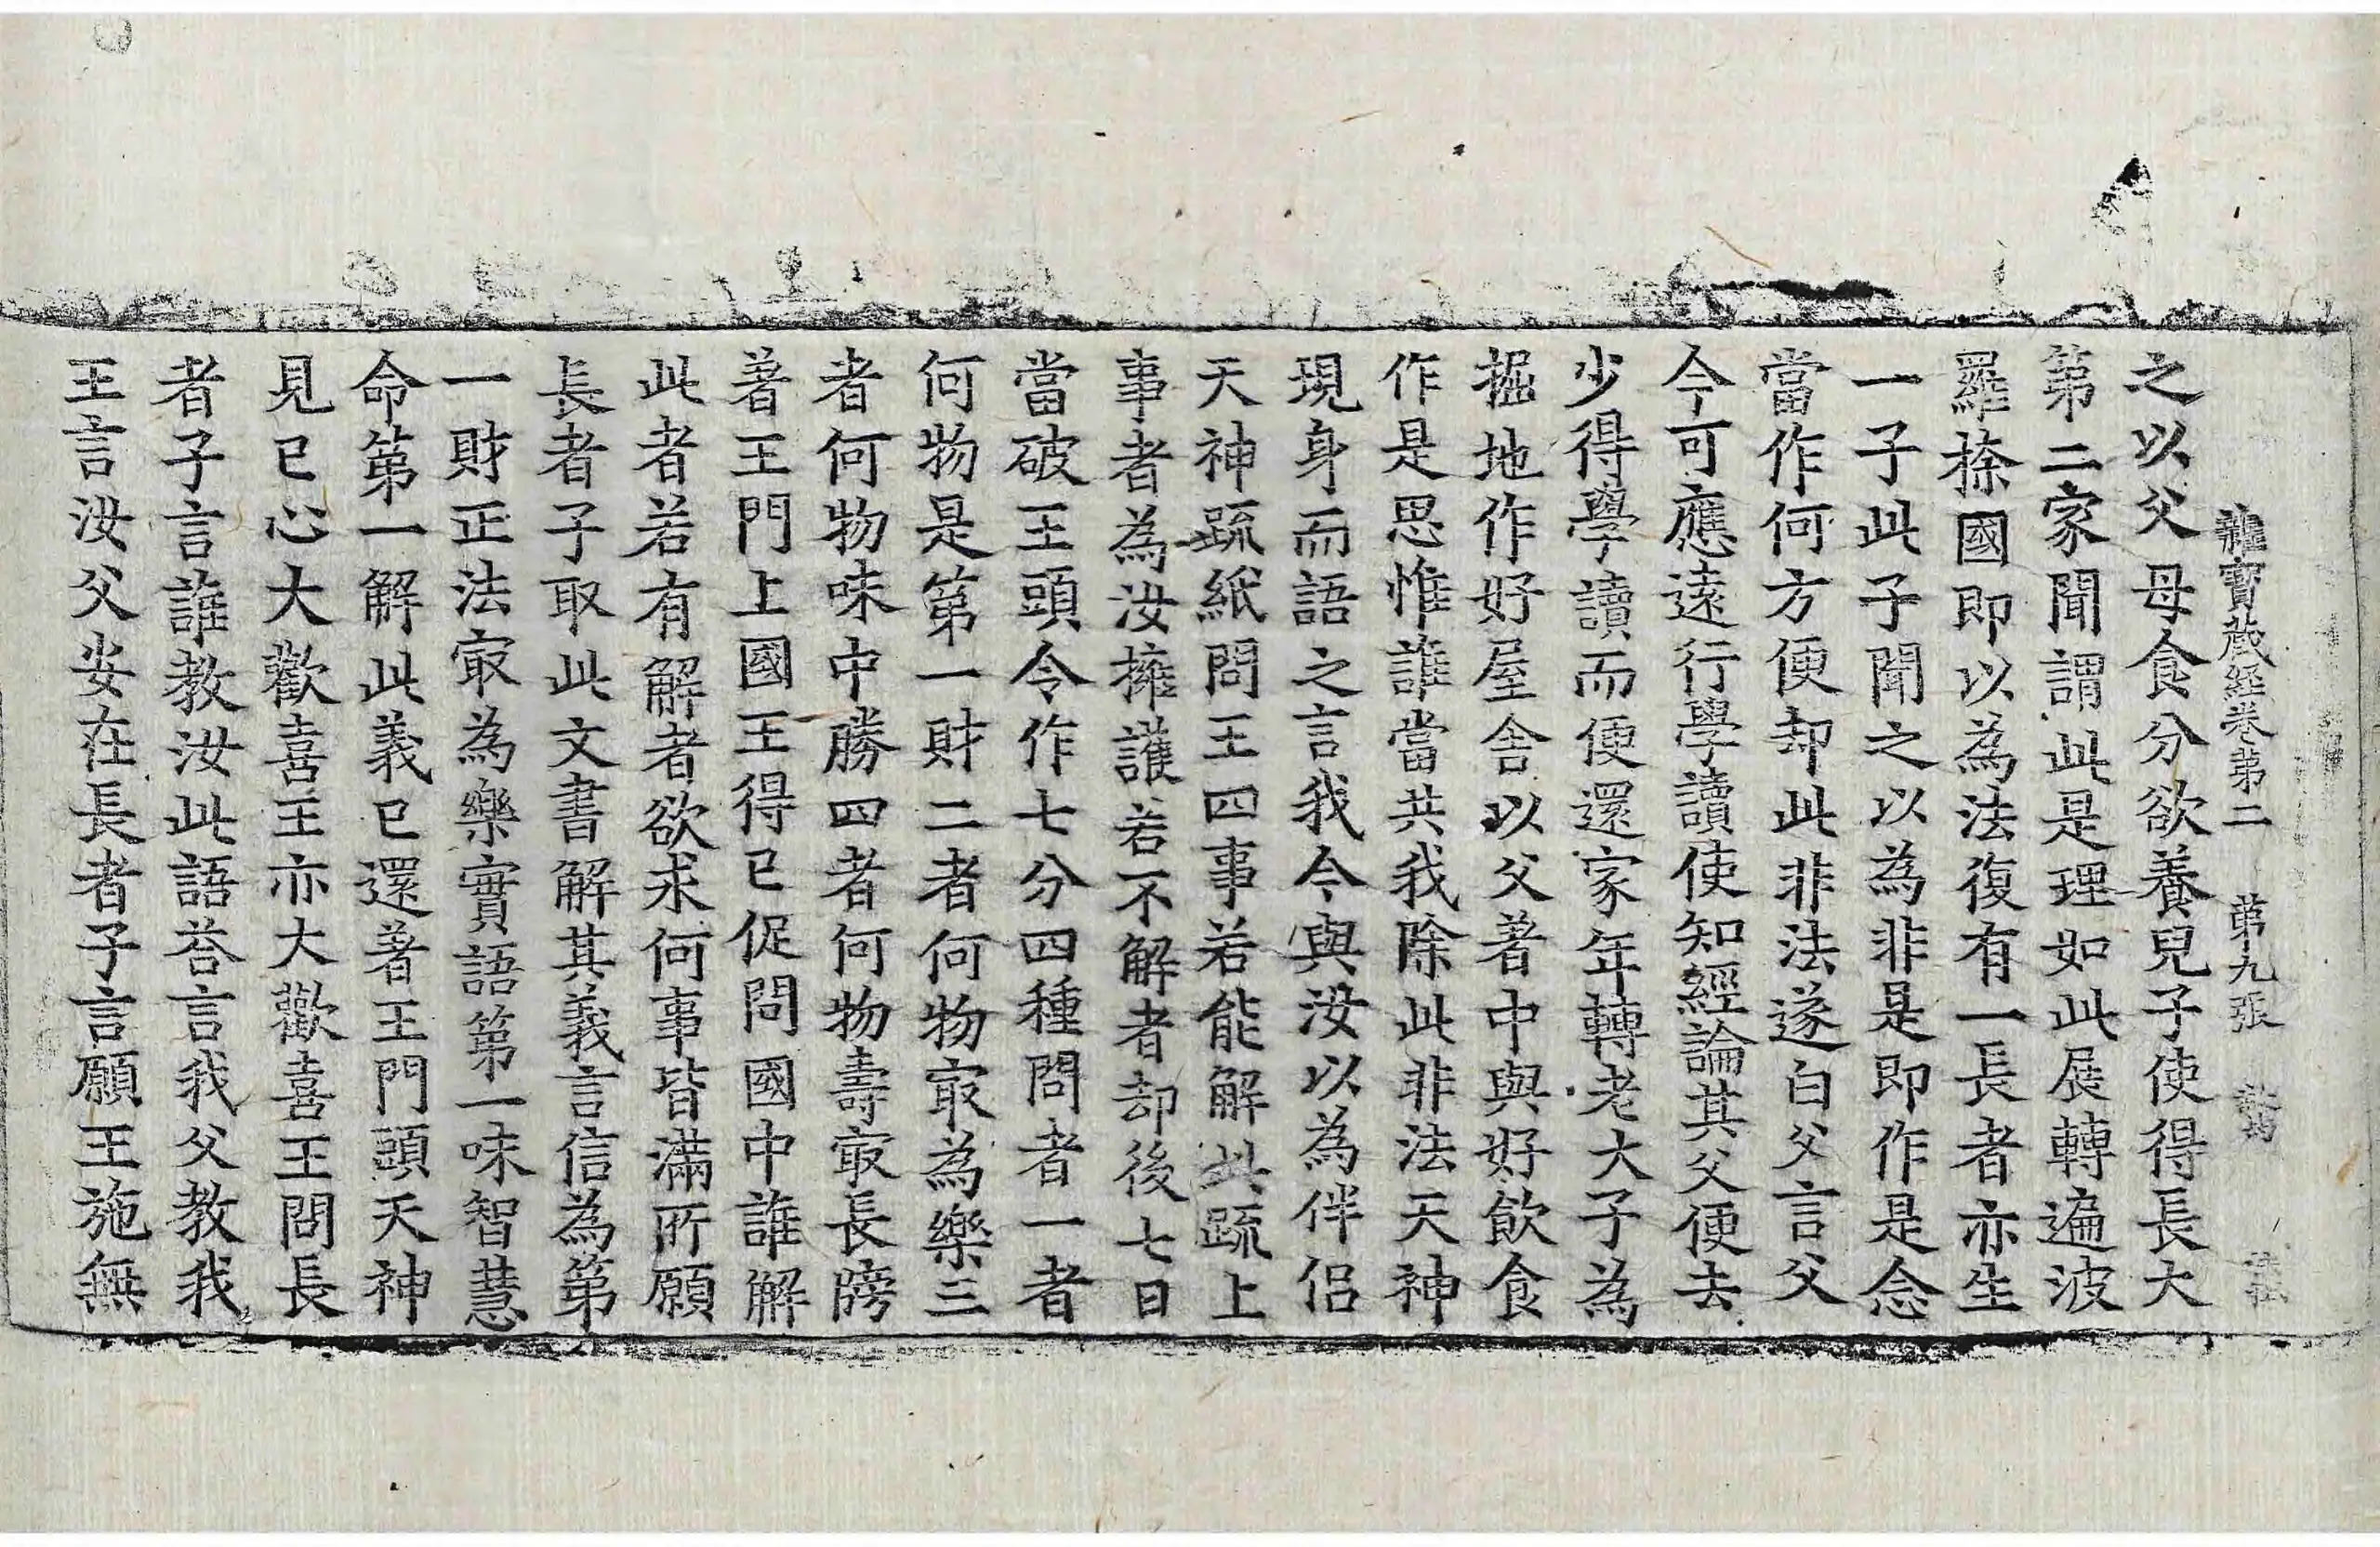 雜寶藏經卷第二　第九張
之以父母食分欲養兒子使得長大
第二家聞謂此是理如此展轉遍波
羅㮈國即以為法復有一長者亦生
一子此子聞之以為非是即作是念
當作何方便却此非法遂白父言父
今可應遠行學讀使知經論其父便去
少得學讀而便還家年轉老大子為
掘地作好屋舍以父著中與好飲食
作是思惟誰當共我除此非法天神
現身而語之言我今與汝以為伴侶
天神疏紙問王四事若能解此疏上
事者為汝擁護若不解者却後七日
當破王頭令作七分四種問者一者
何物是第一財二者何物㝡為樂三
者何物味中勝四者何物壽㝡長牓
著王門上國王得已促問國中誰解
此者若有解者欲求何事皆滿所願
長者子取此文書解其義言信為第
一財正法㝡為樂實語第一味智慧
命第一解此義已還著王門頭天神
見已心大歡喜王亦大歡喜王問長
者子言誰教汝此語荅言我父教我
王言汝父安在長者子言願王施無